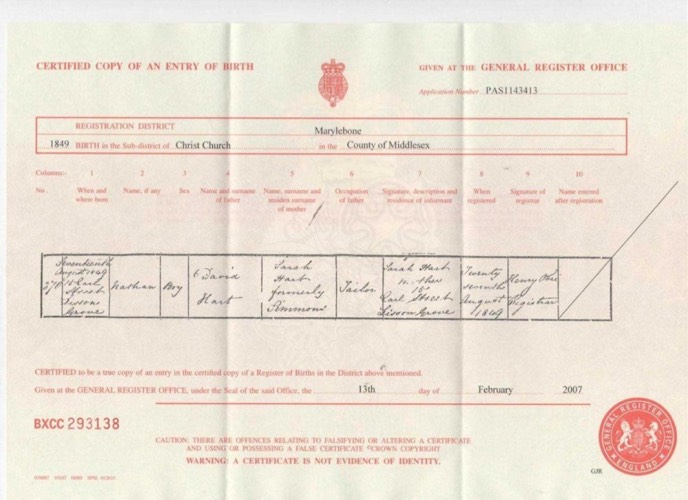 CERTIFIED COPY OF AN ENTRY OF BIRTH
GIVEN AT THE GENERAL REGISTER OFFICE
Application Number PAS1143413
REGISTRATION DISTRICT Marylebone
1849 BIRTH in the Sub-district of Christ Church in the County of Middlesex
Columns:- 1 2 3 4 5 6 7 8 9 10
No. When and where born Name, if any Sex Name and surname of father Name, surname and maiden surname of mother Occupation of father Signature, description and residence of informant When registered Signature of registrar Name entered after registration
Seventeenth August 1849 Earl Street Lisson Grove
Nathan
Boy
David Hart
Sarah Hart formerly Simmons
Tailor
Sarah Hart Mother 18 Earl Street Lisson Grove
Twenty seventh August 1849
Henry Registrar
CERTIFIED to be a true copy of an entry in the certified copy of a Register of Births in the District above mentioned.
Given at the GENERAL REGISTER OFFICE, under the Seal of the said Office, the 13th day of February 2007
BXCC 293138
CAUTION: THERE ARE OFFENCES RELATING TO FALSIFYING OR ALTERING A CERTIFICATE
AND USING OR POSSESSING A FALSE CERTIFICATE ©CROWN COPYRIGHT
WARNING: A CERTIFICATE IS NOT EVIDENCE OF IDENTITY.
GENERAL REGISTER OFFICE
ENGLAND
GJR